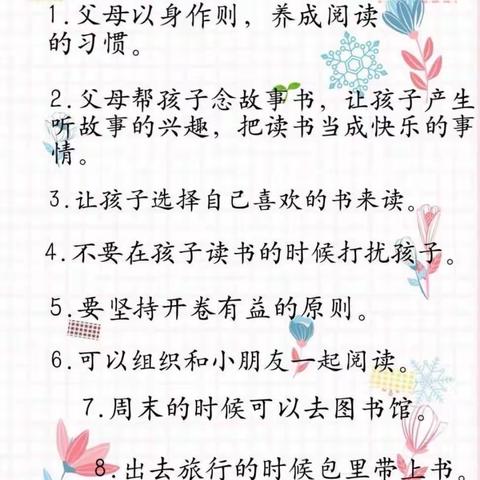 1.父母以身作则，养成阅读
的习惯。
2.父母帮孩子念故事书，让孩子产生
听故事的兴趣，把读书当成快乐的事
情。
3.让孩子选择自己喜欢的书来读。
4.不要在孩子读书的时候打扰孩子。
5.要坚持开卷有益的原则。
6.可以组织和小朋友一起阅读。
7.周末的时候可以去图书馆。
8.出去旅行的时候包里带上书。